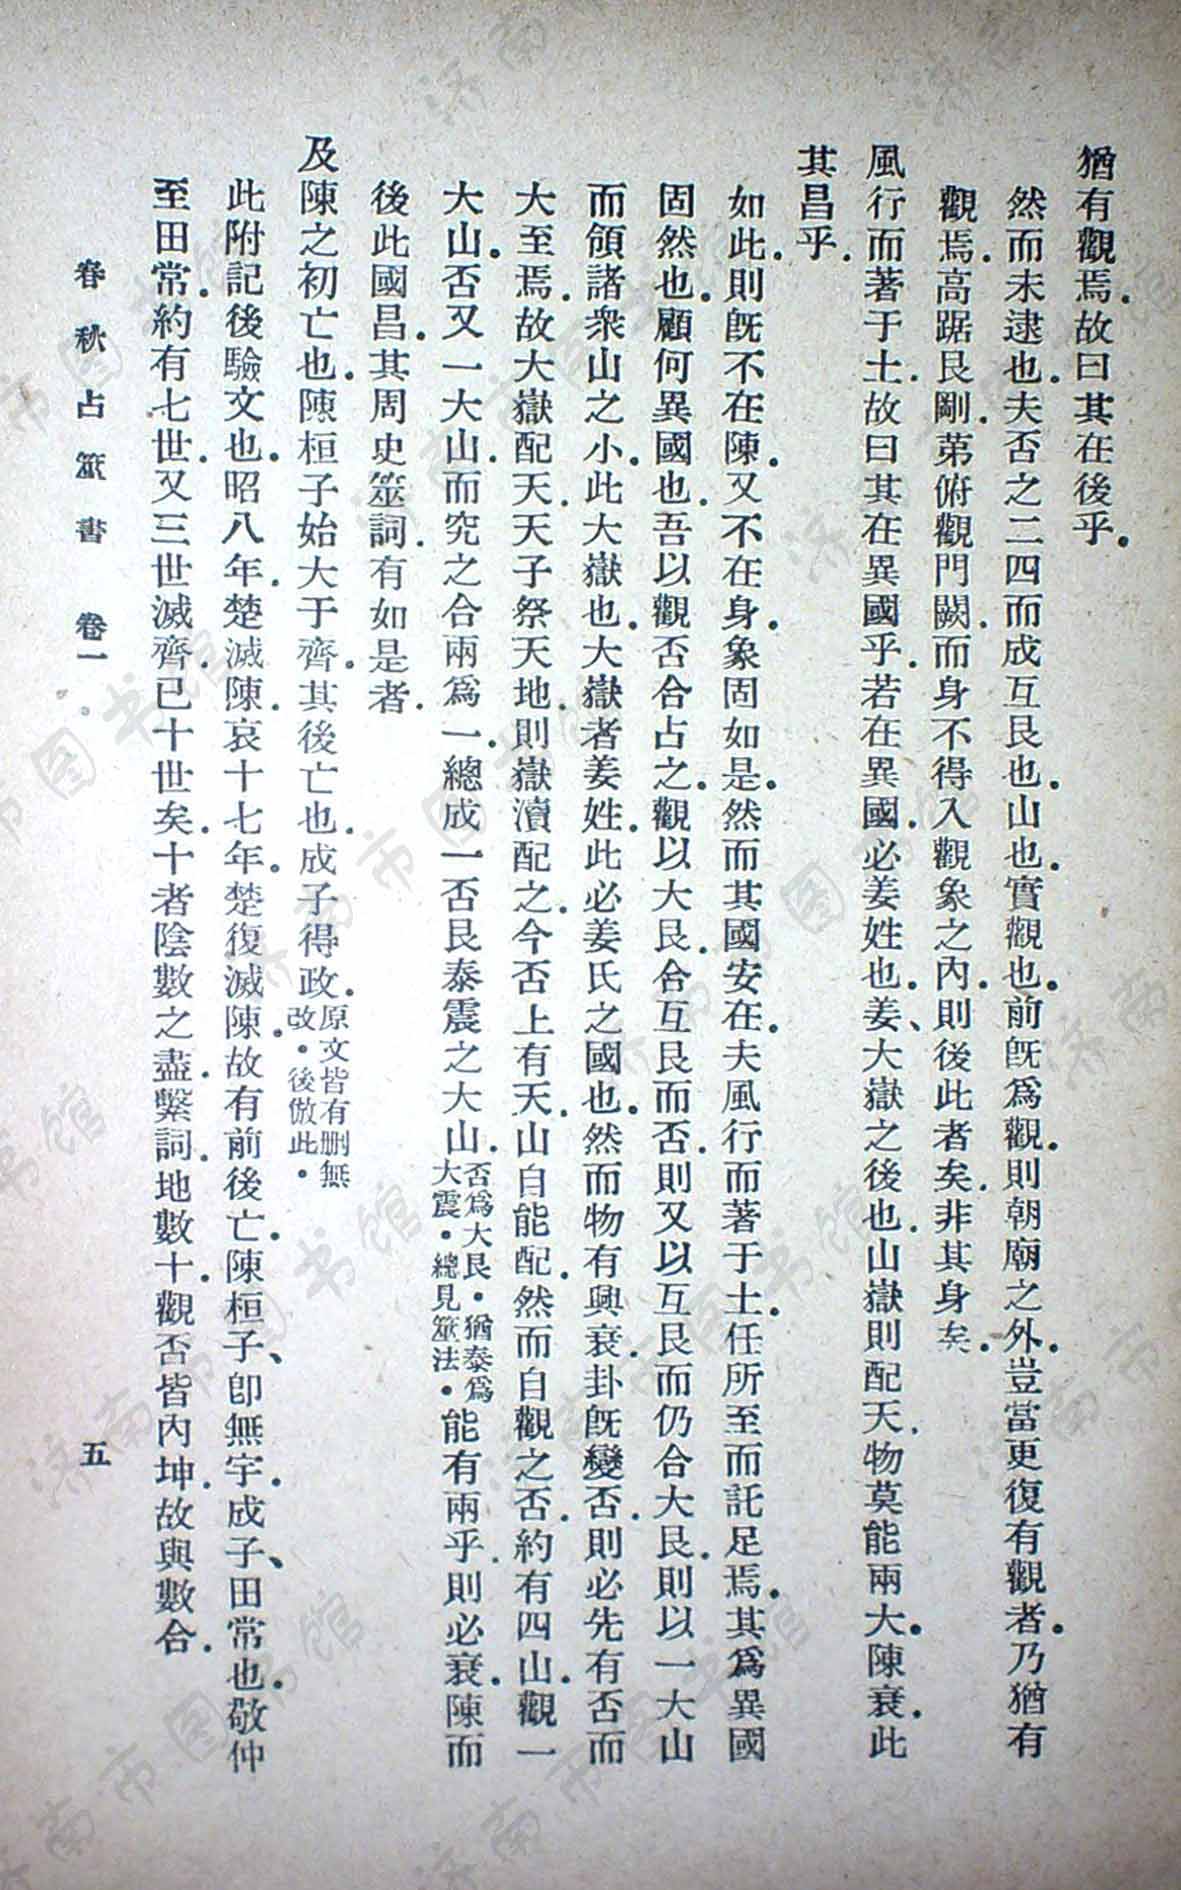 猶有觀焉.故曰其在後乎.
然而未逮也.夫否之二四而成互艮也.山也.實觀也.前旣爲觀.則朝廟之外.豈當更復有觀者.乃猶有
觀焉.高踞艮剛.第俯觀門闕.而身不得入觀象之內.則後此者矣.非其身矣.
風行而著于土.故曰其在異國乎.若在異國.必姜姓也.姜、大嶽之後也.山嶽則配天.物莫能兩大.陳衰.此
其昌乎.
如此.則旣不在陳.又不在身.象固如是.然而其國安在.夫風行而著于土.任所至而託足焉.其爲異國
固然也.顧何異國也.吾以觀否合占之.觀以大艮.合互艮而否.則又以互艮而仍合大艮.則以一大山
而領諸衆山之小.此大嶽也.大嶽者姜姓.此必姜氏之國也.然而物有興衰.卦旣變否.則必先有否而
大至焉.故大嶽配天.天子祭天地.則嶽瀆配之.今否上有天.山自能配.然而自觀之否.約有四山.觀一
大山.否又一大山.而究之合兩爲一.總成一否艮泰震之大山.否爲大艮.猶泰爲大震.總見筮法.能有兩乎.則必衰陳而
後此國昌.其周史筮詞.有如是者.
及陳之初亡也.陳桓子始大于齊.其後亡也.成子得政.原文皆有刪無改.後倣此.
此附記後驗文也.昭八年.楚滅陳.哀十七年.楚復滅陳.故有前後亡.陳桓子、卽無宇.成子、田常也.敬仲
至田常.約有七世.又三世滅齊.已十世矣.十者陰數之盡.繫詞.地數十.觀否皆內坤.故與數合.
春秋占筮書 卷一 五
濟南市图书馆